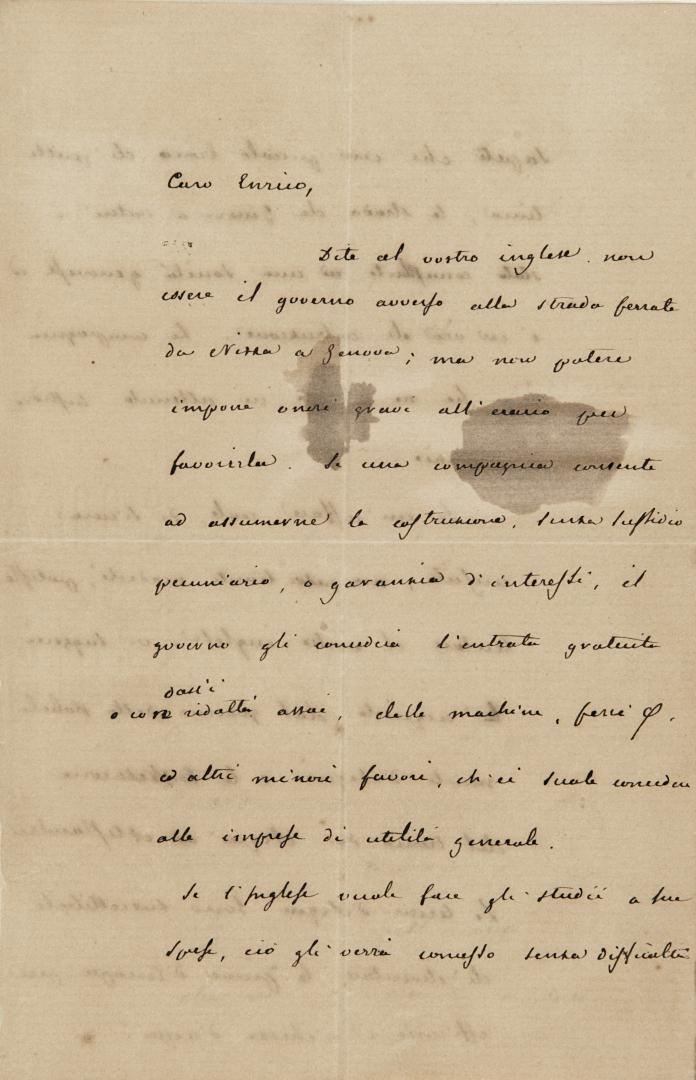 Caro Enrico,
Dite al vostro inglese non
essere il governo avverso alla strada ferrata
da Nizza a Genova; ma non potere
imporre oneri gravi all'erario per
favorirla. Se una compagnia consente
ad assumerne la costruzione, senza sussidio
pecuniario, o garanzia d'interessi, il
governo gli concederà l'entrata gratuita
dazii
o con ridotti assai, delle machine, ferri
ed altri minori favori, ch'ei suole concedere
alle imprese di utilità generale.
Se l'Inglese vuole fare gli studii a sue
spese, ciò gli verrà concesso senza difficoltà